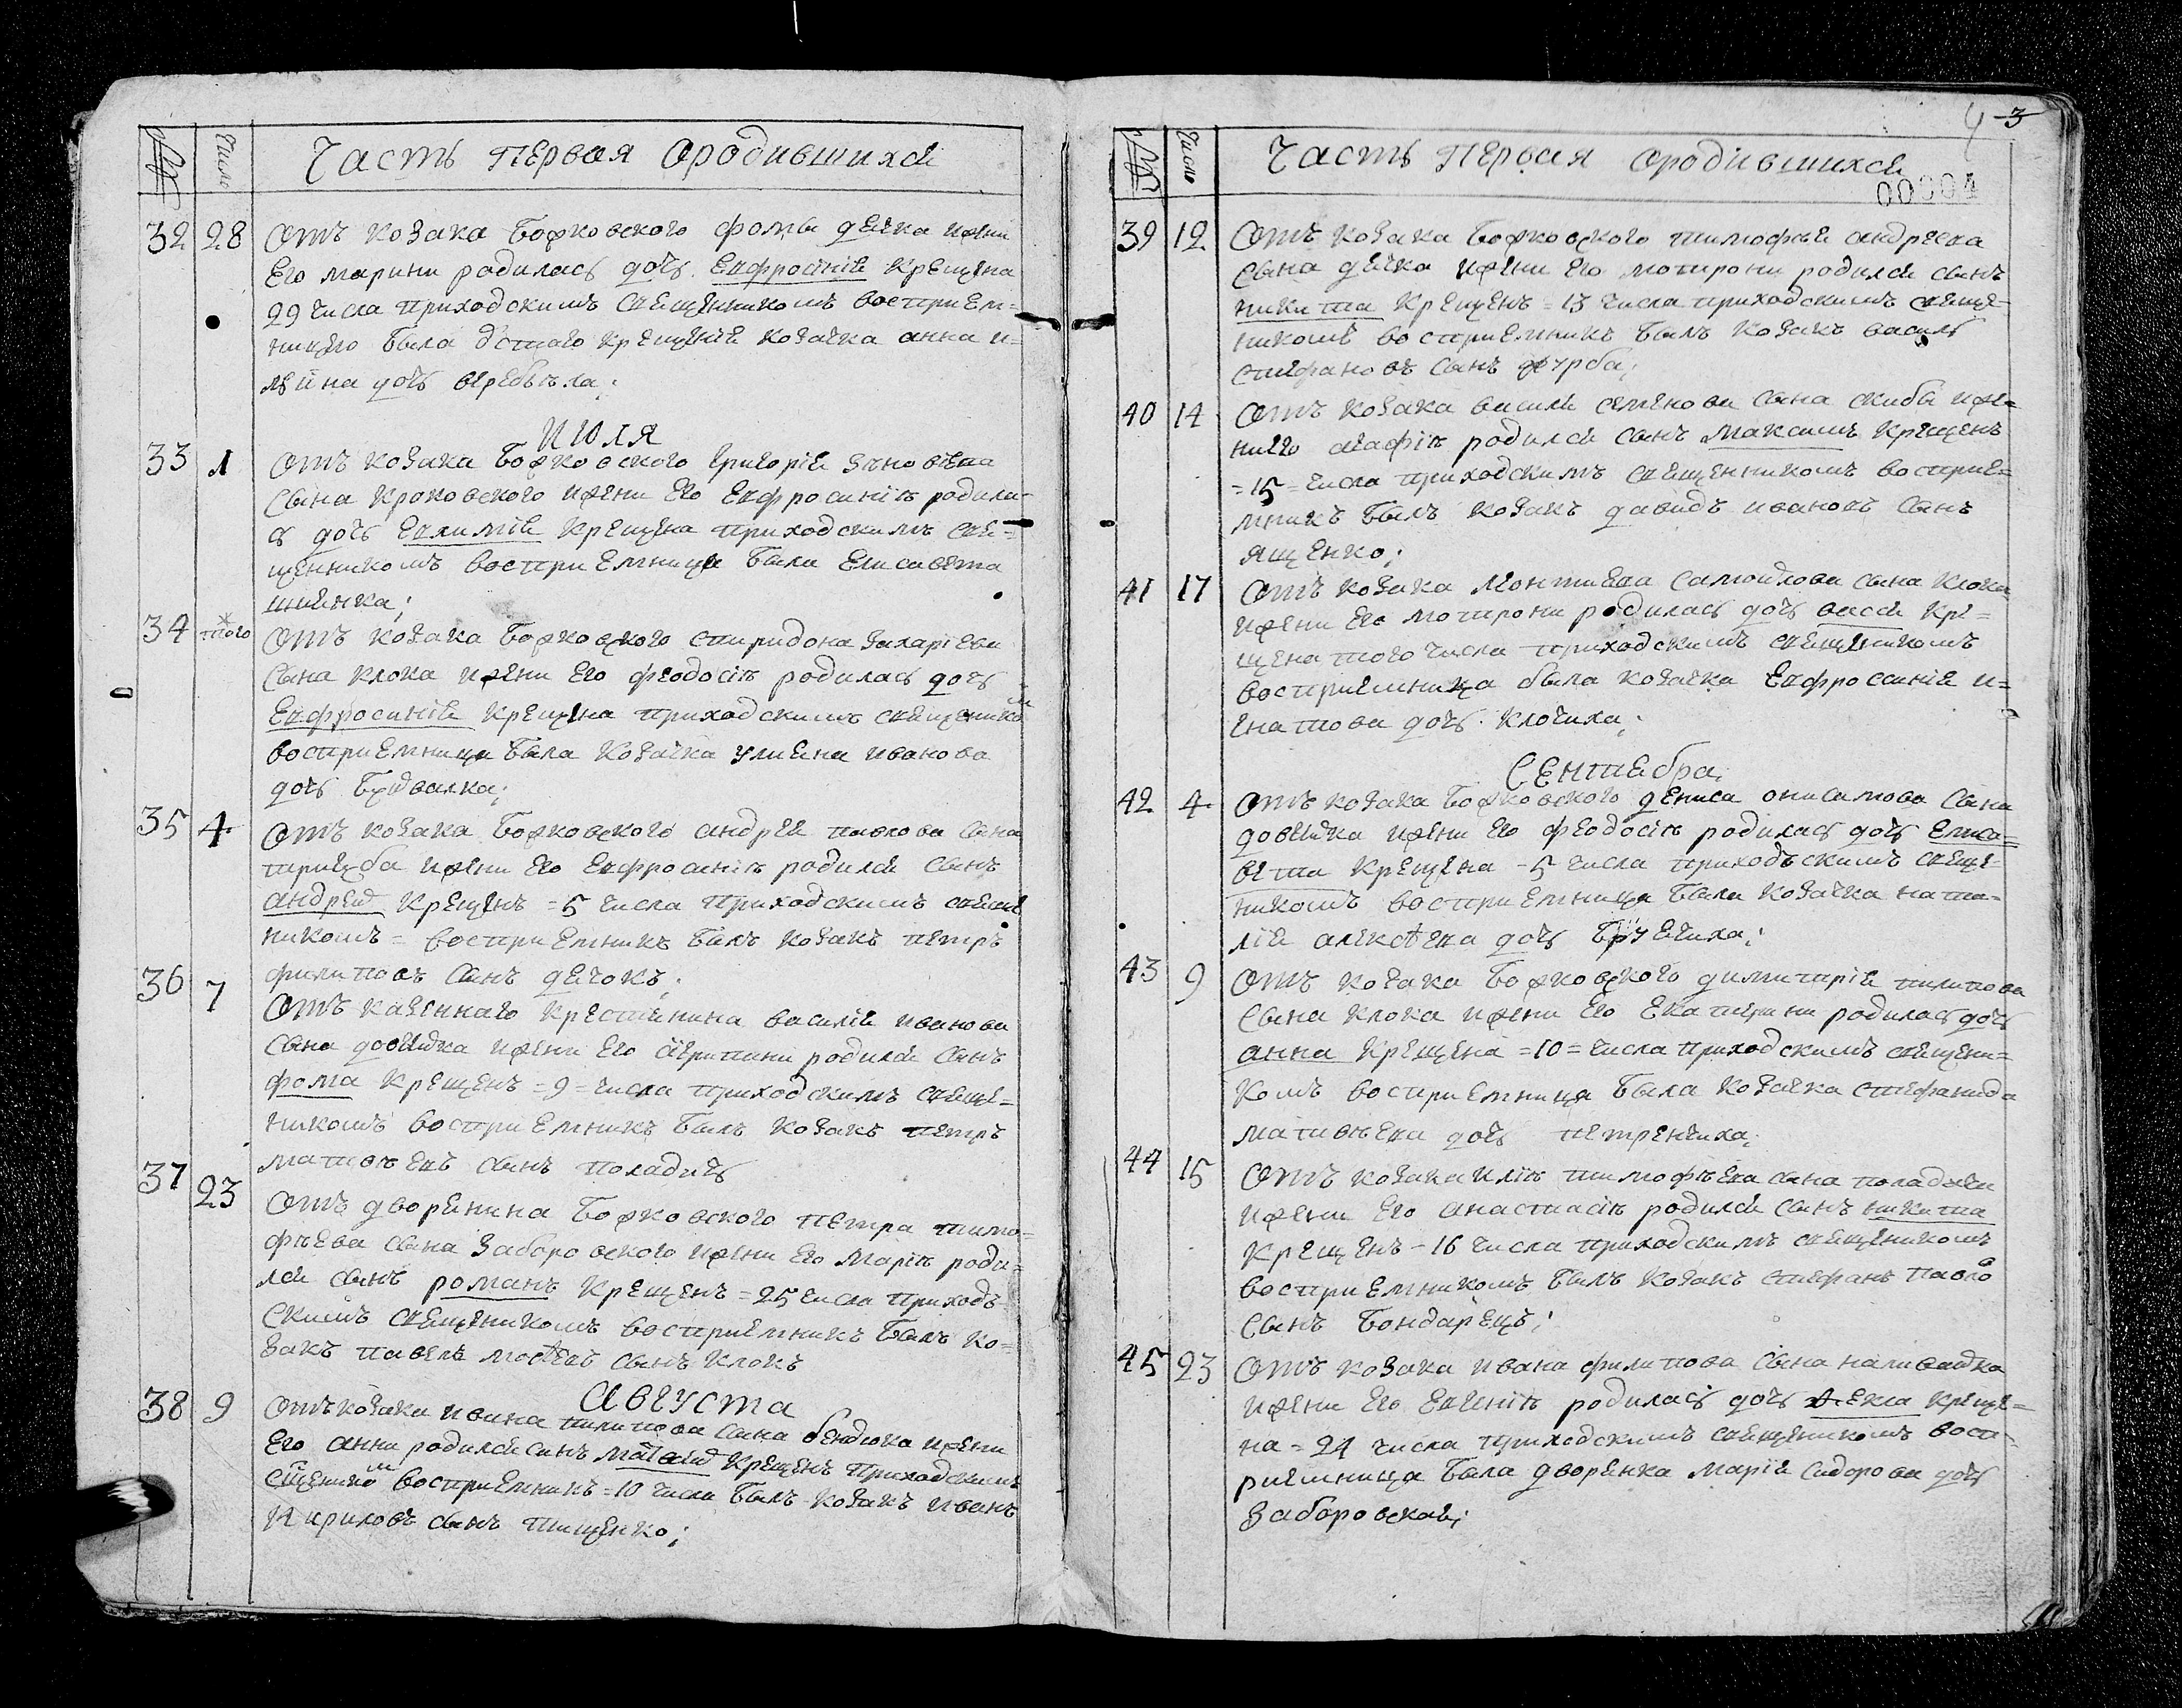 Число
Часть первая ородившихся
32 28 Отъ козака Божковского фомы дячка ижени
Его марини родилась дочь Евфросиния Крещена
29 числа приходскимъ священникомъ восприем-
ницею была д'стаго крещения козачка анна и-
льина дочь веребьела;
Июля
33 1 Отъ козака Божковского Григория Зиновиева
сына Краковского ижени Его Евфросинии родила-
с дочь Евлимпія Крещена приходскимъ свя-
щенникомъ восприемница была Елисавета
34 того Отъ козака Божковского спиридона захариева
сына клока ижени Его феодосіи родилась дочь
Евфросиния Крещена приходскимъ священико
восприемница была Козачка улияна иванова
дочь
35 4 Отъ козака Божковского андрея павлова сына
ижени Его Евфросинии родился сынъ
андрей Крещенъ = 5 числа приходскимъ свяще
никомъ = восприемникъ былъ козакъ петръ
филиповъ сынъ дячокъ;
36 7 Отъ казенного крестянина василія иванова
сына довийдка ижени Его агрипини родился сынъ
фома Крещенъ = 9 = числа приходскимъ свяще=
никомъ восприемникъ былъ козакъ петръ
матвѣевъ сынъ паладичъ
37 23 Отъ дворянина Божковского петра тимо-
фѣева сына Заборовского ижени Его Маріи роди-
лся сынъ романъ Крещенъ = 25 числа приходъ
скимъ священикомъ восприемникъ былъ ко=
закъ павелъ мосѣевъ сынъ клокъ
Августа
38 9 Отъ козака ивана пилипова сына бендюка ижени
Его анни родился синъ матвѣй Крещенъ приходскимъ
сщенико м восприемникъ = 10 числа былъ козакъ иванъ
Кириловъ сынъ тищенко;
3
Число
Часть первая ородившихся
00004
39 12 Отъ козака Божковского тимофея андреева
сына дячка ижени Его мотрони родился сынъ
никита Крещенъ = 13 числа приходскимъ свяще-
никомъ восприемникъ былъ козакъ василь
стефановъ сынъ журба;
40 14 Отъ козака василя семенова сына скибы иже=
ниего агафіи родился сынъ максимъ крещенъ
= 15 = числа приходскимъ священникомъ восприе=
мникъ былъ козакъ давидъ ивановъ сынъ
ященко;
41 17 Отъ козака леонтиева самойлова сына клока
ижени Его мотрони родилась дочь васса кре=
щена того числа приходскимъ священикомъ
восприемница была козачка Евфроссиния и=
гнатова дочь клочиха;
Сентебра
42 4 Отъ козака Божковского дениса онисимова сына
довийдка ижени Его феодосіи родилась дочь Елиса=
вета Крещена = 5 числа приходъскимъ свяще-
никомъ восприемница была козачка ната=
лія алексѣева дочь
43 9 Отъ козака Божковского димитрія пилипова
сына клока ижени Его Екатерини родилась дочь
анна Крещена = 10 = числа приходскимъ священи=
комъ восприемница была козачка стефанида
матвѣева дочь петренчиха;
44 15 Отъ козака иліи тимофѣева сына паладича
ижени Его анастасіи родился сынъ никита
Крещенъ = 16 числа приходскимъ священикомъ
восприемникомъ былъ козакъ стефанъ павло в
сынъ бондарецъ;
45 23 Отъ козака ивана филипова сына наливайка
ижени Его Евгеніи родилась дочь Ѳекла креще=
на = 24 числа приходскимъ священикомъ восп-
риемница была дворянка марія сидорова дочь
Заборовская;